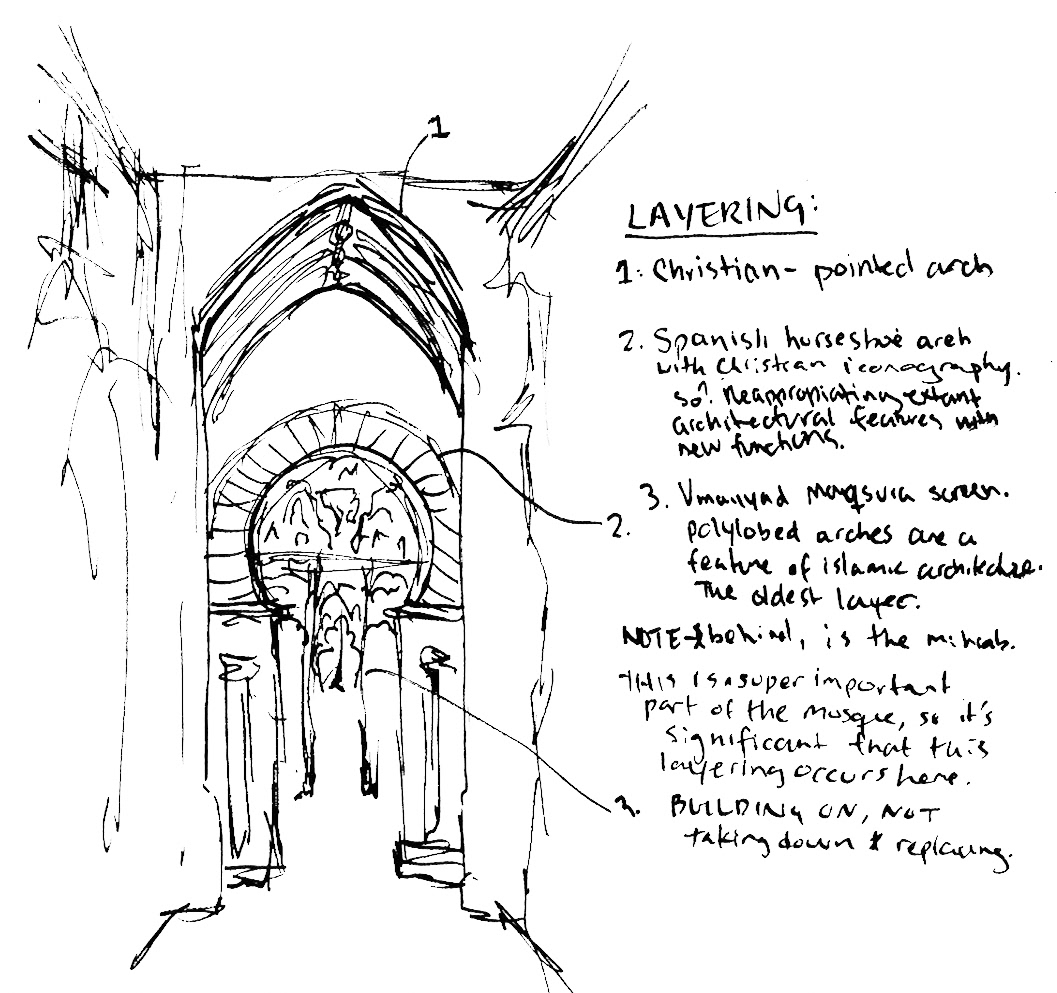 1
LAYERING:
1: Christian- pointed arch
2. Spanish horseshoe arch
with Christian iconography.
so? Reappropriating extant
architectural features with
new functions.
3. Umayyad Maqsura screen.
2.
polylobed arches are a
feature of islamic architecture.
The oldest layer.
NOTE- behind, is the mihrab.
THIS is a super important
part of the mosque, so it's
significant that this
layering occurs here.
3.
BUILDING ON, NOT
taking down & replacing.